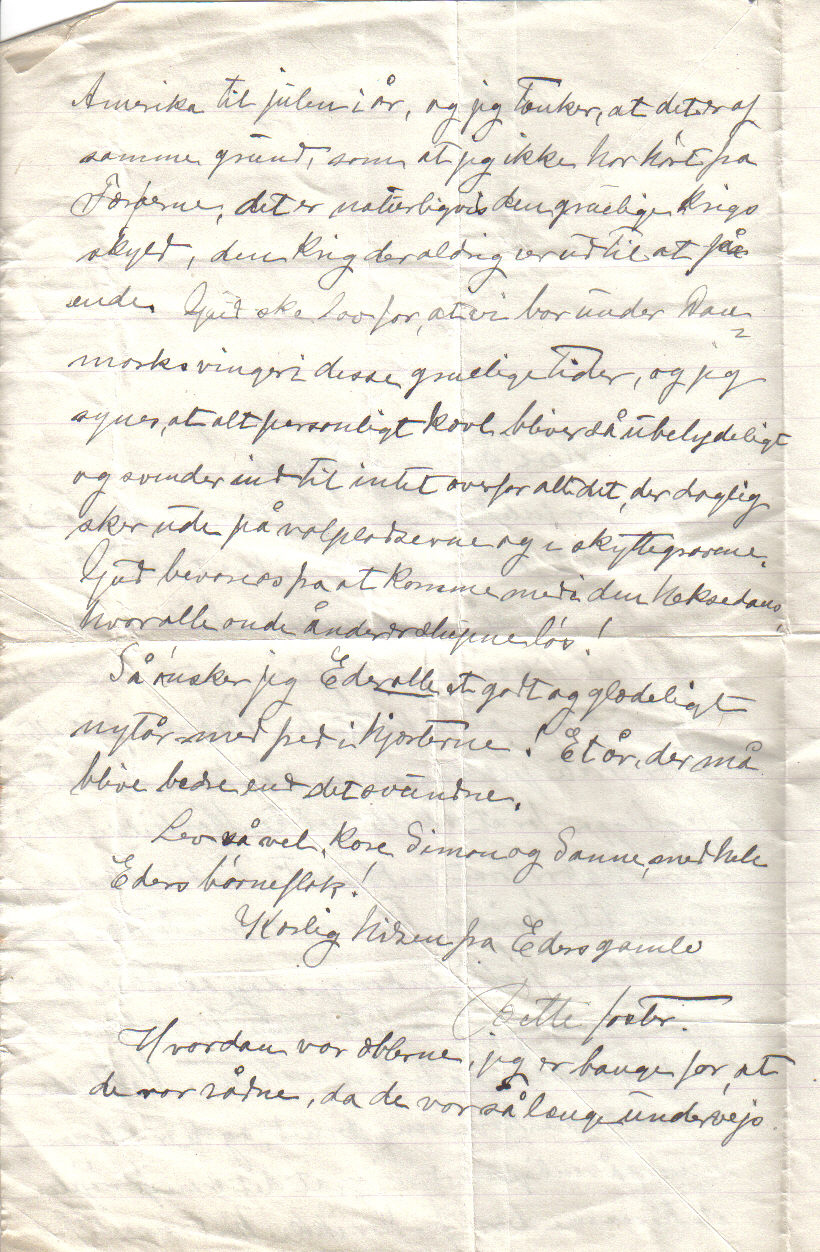 Amerika til julen i år, og jeg tænker, at det er af
samme grund, som at jeg ikke har hørt fra
Færøerne, det er naturligvis den gruelige Krigs
skyld, den Krig der aldrig ser ud til at få
ende. Gud ske Lov for, at vi bor under Dan=
marks vinger i disse gruelige tider, og jeg
synes, at alt personligt kævl bliver så ubetydeligt
og svinder ind til intet overfor alt det, der daglig
sker ude på valpladserne og i skyttegravene.
Gud bevare os fra at komme med i den Heksedans,
hvor alle onde ånder er slupne løs!
Så ønsker jeg Eder alle et godt og glædeligt
nytår med fred i hjerterne! Et år, der må
blive bedre end det svundne.
Lev så vel, kære Simon og Sanne, med hele
Eders børneflok!
Kærlig hilsen fra Eders gamle
faster.
Hvordan var æblerne, jeg er bange for, at
de var rådne, da de var så længe undervejs.